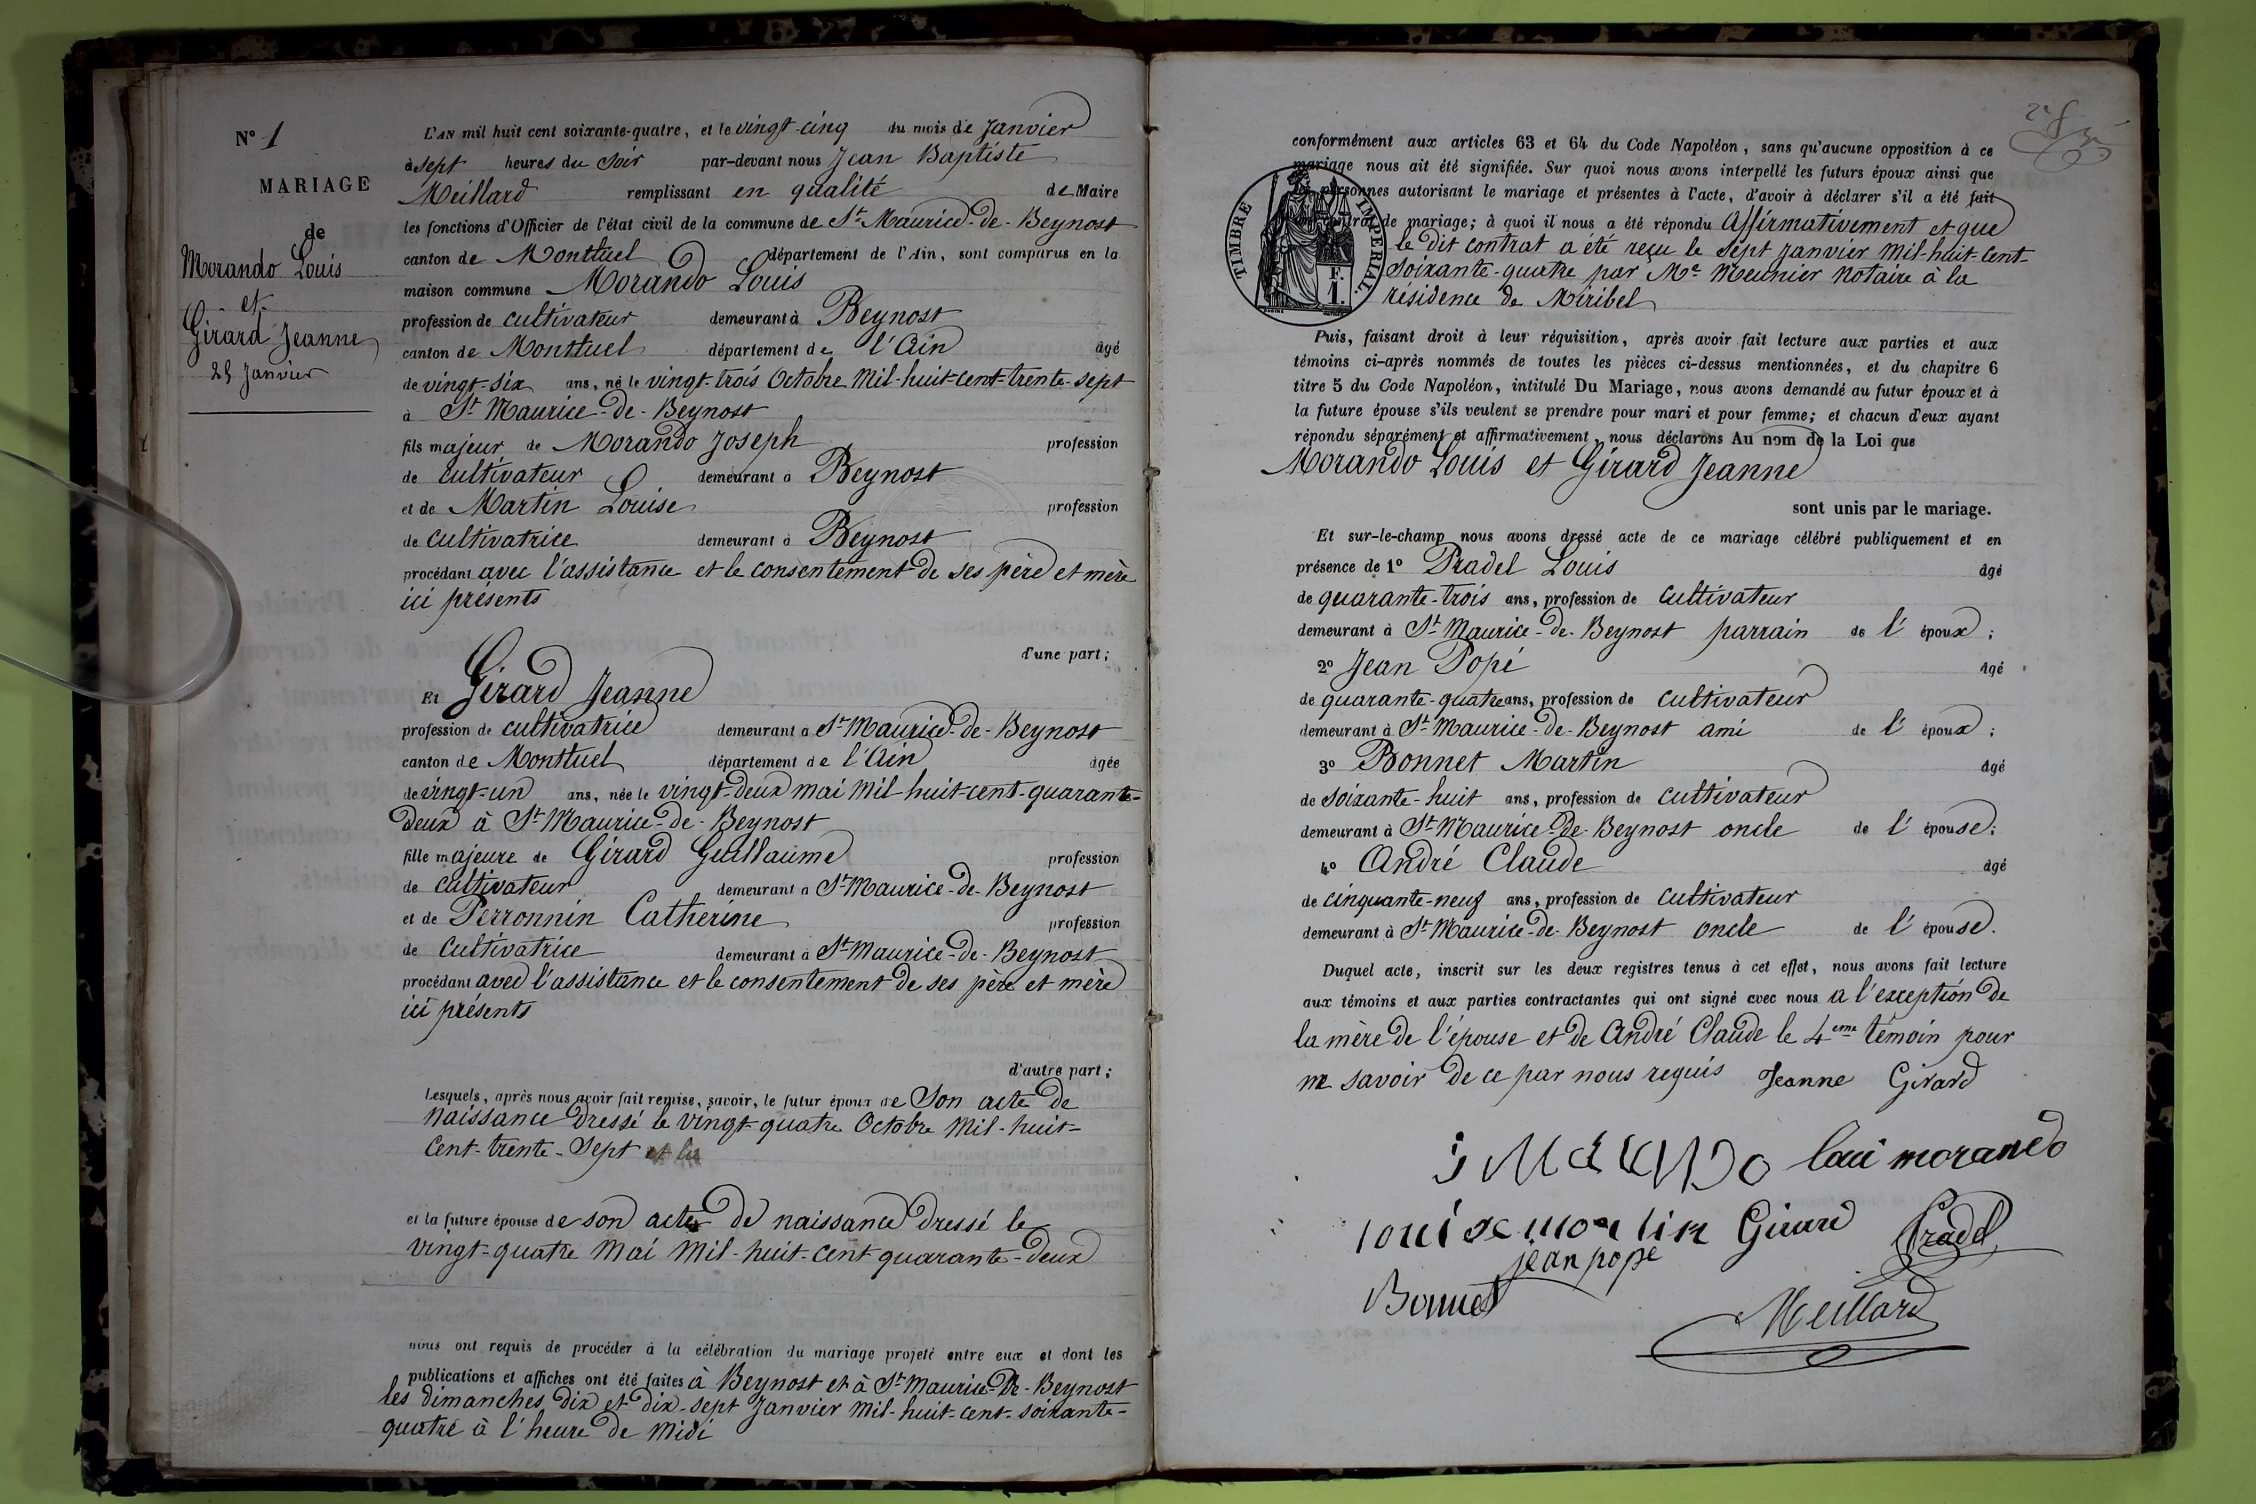 N° 1
MARIAGE
de
Morando Louis
et
Girard Jeanne
25 Janvier
L'AN mil huit cent soixante-quatre, et le vingt-cinq du mois de Janvier
à sept heures du soir par-devant nous Jean Baptiste
Meillard remplissant en qualité de Maire
les fonctions d'Officier de l'état civil de la commune de St Maurice-de-Beynost
canton de Montluel département de l'Ain, sont comparus en la
maison commune Morando Louis
profession de cultivateur demeurant à Beynost
canton de Montluel département de l'Ain âgé
de vingt-six ans, né le vingt-trois Octobre Mil-huit-cent-trente-sept
à St Maurice-de-Beynost
fils majeur de Morando Joseph profession
de cultivateur demeurant à Beynost
et de Martin Louise profession
de cultivatrice demeurant à Beynost
procédant avec l'assistance et le consentement de ses père et mère
ici présents
d'une part;
Et Girard Jeanne
profession de cultivatrice demeurant à St Maurice-de-Beynost
canton de Montluel département de l'Ain âgée
de vingt-un ans, née le vingt-deux mai Mil-huit-cent-quarante-
deux à St Maurice-de-Beynost
fille majeure de Girard Guillaume profession
de cultivateur demeurant à St Maurice-de-Beynost
et de Perronnin Catherine profession
de cultivatrice demeurant à St Maurice-de-Beynost
procédant avec l'assistance et le consentement de ses père et mère
ici présents
d'autre part;
Lesquels, après nous avoir fait remise, savoir, le futur époux de Son acte de
naissance dressé le vingt-quatre Octobre Mil-huit-
cent-trente-sept et la
et la future épouse de son acte de naissance dressé le
vingt-quatre Mai Mil-huit-cent quarante-deux
nous ont requis de procéder à la célébration du mariage projeté entre eux et dont les
publications et affiches ont été faites à Beynost et à St Maurice-de-Beynost
les dimanches dix et dix-sept Janvier Mil-huit-cent-soixante-
quatre à l'heure de Midi
conformément aux articles 63 et 64 du Code Napoléon, sans qu'aucune opposition à ce
mariage nous ait été signifiée. Sur quoi nous avons interpellé les futurs époux ainsi que
personnes autorisant le mariage et présentes à l'acte, d'avoir à déclarer s'il a été fait
contrat de mariage; à quoi il nous a été répondu Affirmativement et que
le dit contrat a été reçu le sept janvier Mil-huit-cent-
soixante-quatre par Me Meunier Notaire à la
résidence de Miribel
TIMBRE IMPERIAL.
Puis, faisant droit à leur réquisition, après avoir fait lecture aux parties et aux
témoins ci-après nommés de toutes les pièces ci-dessus mentionnées, et du chapitre 6
titre 5 du Code Napoléon, intitulé Du Mariage, nous avons demandé au futur époux et à
la future épouse s'ils veulent se prendre pour mari et pour femme; et chacun d'eux ayant
répondu séparément et affirmativement, nous déclarons Au nom de la Loi que
Morando Louis et Girard Jeanne
sont unis par le mariage.
Et sur-le-champ nous avons dressé acte de ce mariage célébré publiquement et en
présence de 1° Pradel Louis âgé
de quarante-trois ans, profession de cultivateur
demeurant à St Maurice-de-Beynost parrain de l'époux;
2° Jean Popé âgé
de quarante-quatre ans, profession de cultivateur
demeurant à St Maurice-de-Beynost ami de l'époux;
3° Bonnet Martin âgé
de soixante-huit ans, profession de cultivateur
demeurant à St Maurice-de-Beynost oncle de l'épouse;
4° André Claude âgé
de cinquante-neuf ans, profession de cultivateur
demeurant à St Maurice-de-Beynost oncle de l'épouse.
Duquel acte, inscrit sur les deux registres tenus à cet effet, nous avons fait lecture
aux témoins et aux parties contractantes qui ont signé avec nous à l'exception de
la mère de l'épouse et de André Claude le 4eme témoin pour
ne savoir de ce par nous requis Jeanne Girard
morando
louise martin Girard Pradel
jean pope
Bonnet
Meillard